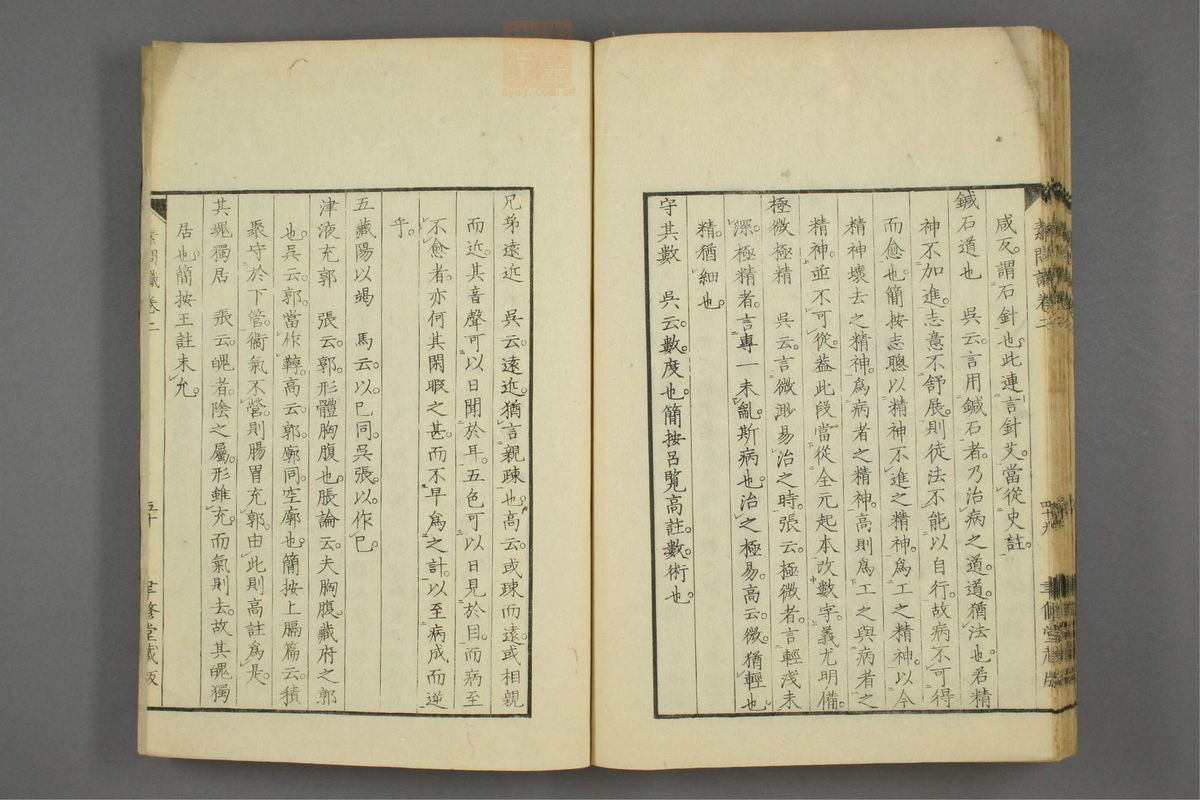 素問識卷二
四十九
聿修堂藏版
咸友謂石針也此連言針艾當從史註
鍼石道也　吳云言用鍼石者乃治病之道道猶法也若精
神不加進志意不舒展則徒法不能以自行故病不可得
而愈也簡按志聰以精神不進之精神爲工之精神以今
精神壞去之精神爲病者之精神高則爲工之與病者之
精神並不可從蓋此段當從全元起本改數字義尤明備
極微極精　吳云言微渺易治之時張云極微者言輕淺未
深極精者言專一未亂斯病也治之極易高云微猶輕也
精猶細也
守其數　吳云數度也簡按呂覽高註數術也
兄弟遠近　吳云遠近猶言親疎也高云或疎而遠或相親
而近其音聲可以日聞於耳五色可以日見於目而病至
不愈者亦何其閑暇之甚而不早爲之計以至病成而逆
乎
五藏陽以竭　馬云以已同吳張以作已
津液充郭　張云郭形體胸腹也脹論云夫胸腹藏府之郭
也吳云郭當作鞟高云郭廓同空廓也簡按上膈篇云積
聚守於下管衞氣不營則腸胃充郭由此則高註爲是
其魄獨居　張云魄者陰之屬形雖充而氣則去故其魄獨
居也簡按王註未允
素問識卷二
五十
聿修堂藏版